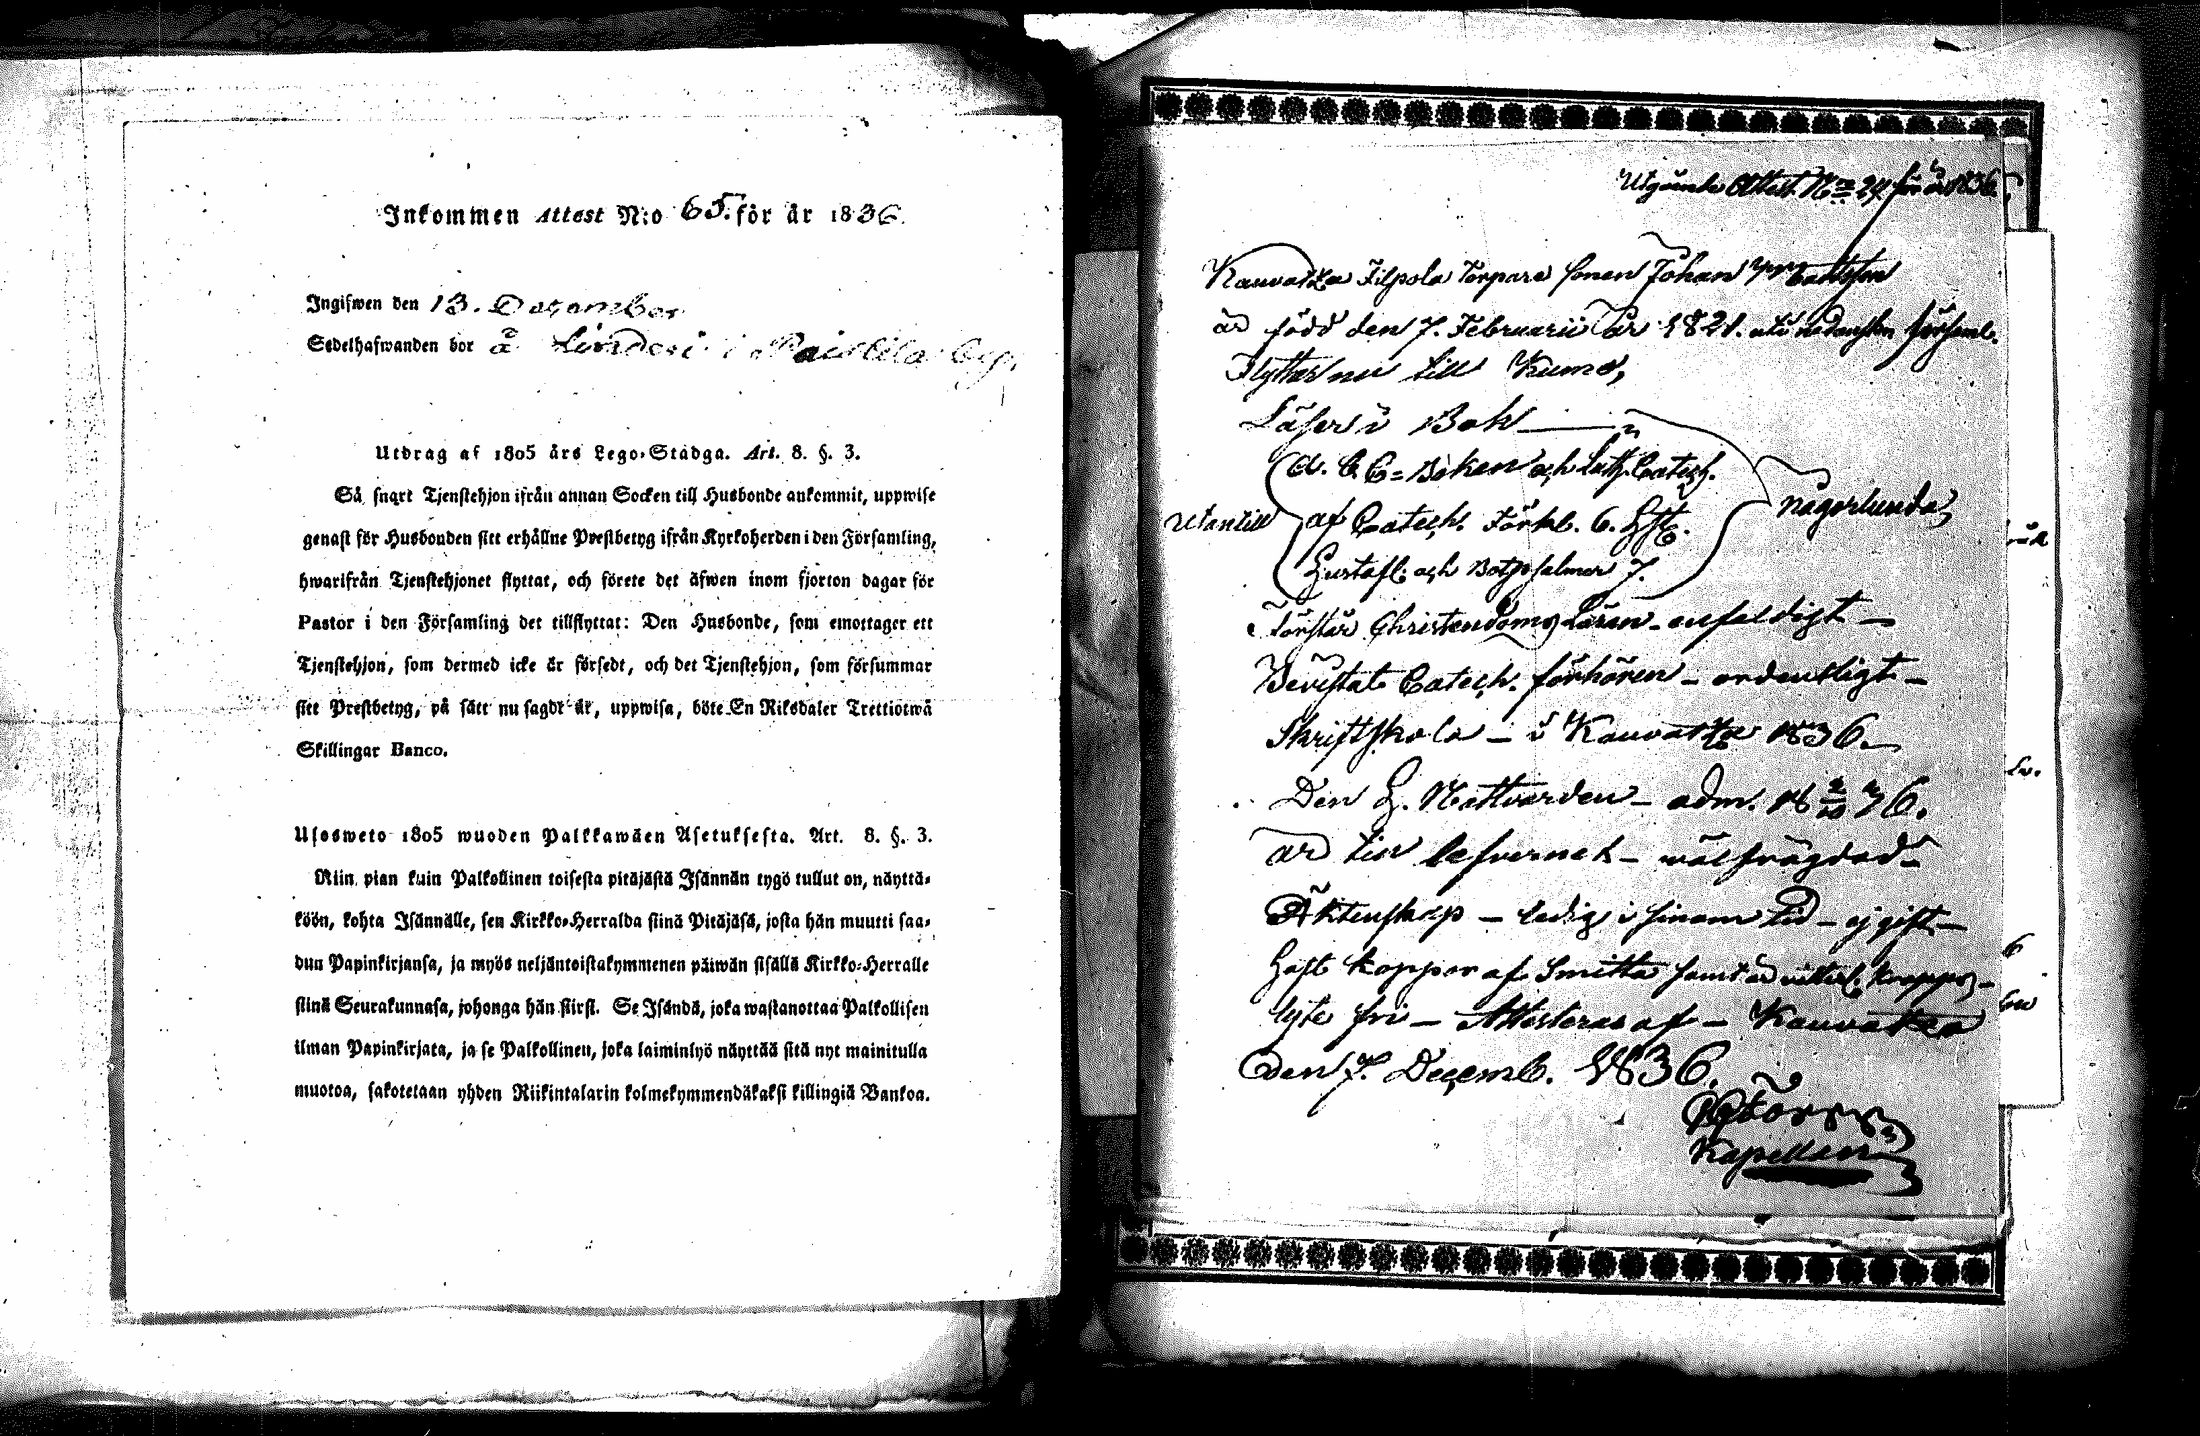 Inkommen Attest N:o 65. för år 1836.
Ingifwen den 13. December
Sedelhafwanden bor å Linderi i Paistila by.
Utdrag af 1805 års Lego-Stadga. Art. 8. §. 3.
Så snart Tjenstehjon ifrån annan Socken till Husbonde ankommit, uppwise
genast för Husbonden sitt erhållne Prestbetyg ifrån Kyrkoherden i den Församling,
hwarifrån Tjenstehjonet flyttat, och förete det äfwen inom fjorton dagar för
Pastor i den Församling det tillflyttat: Den Husbonde, som emottager ett
Tjenstehjon, som dermed icke är försedt, och det Tjenstehjon, som försummar
sitt Prestbetyg, på sätt nu sagdt är, uppwisa, böte En Riksdaler Trettiotwå
Skillingar Banco.
Ulosweto 1805 wuoden Palkkawäen Asetuksesta. Art. 8. §. 3.
Niin pian kuin Palkollinen toisesta pitäjästä Isännän tygö tullut on, näyttä-
köön, kohta Isännälle, sen Kirkko-Herralda siinä Pitäjäsä, josta hän muutti saa-
dun Papinkirjansa, ja myös neljäntoistakymmenen päiwän sisällä Kirkko-Herralle
siinä Seurakunnasa, johonga hän siirsi. Se Isändä, joka wastanottaa Palkollisen
ilman Papinkirjata, ja se Palkollinen, joka laiminlyö näyttää sitä nyt mainitulla
muotoa, sakotetaan yhden Riikintalarin kolmekymmendäkaksi killingiä Bankoa.
Utgående Attest N:o 24 för år 1836.
Kauvatza Filpola Torpare sonen Johan Mattsson
är född den 7. Februarii år 1821. uti nedanskn församl.
Flyttar nu till Kumo,
Läser i Bok —
a. b C-Boken och Luth. Catech.
Utantill af Catech. Förkl. 6. Hft. någorlunda,
Gustafs. och Botpsalmer 7.
Förstår Christendoms Läran - enfaldigt —
Bevistat Catech. förhören - ordentligt —
Skriftskola — i Kauvatza 1836. —
Den H. Nattvarden - adm. 18 2/10 36.
är till lefvernet - wälfrägdad —
Äktenskap — ledig i sinom tid - ej gift. —
Haft koppor af Smitta samt är kropps-
lyte fri — Attesteras af — Kauvatza
den 7. Decemb. 1836.
Kapellan